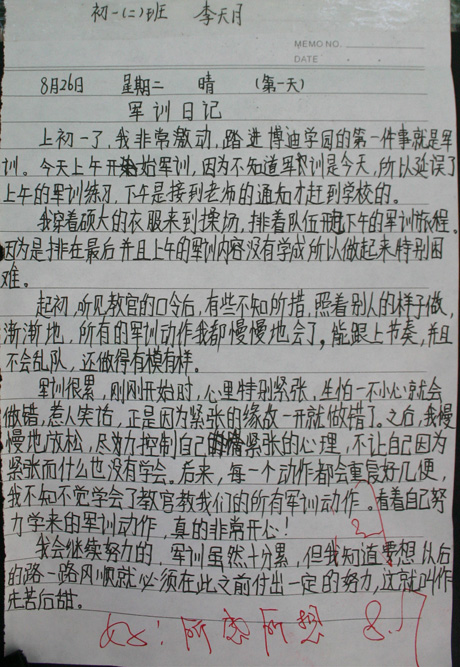 初一(二)班 李天月
MEMO NO.
DATE
8月26日 星期二 晴 (第一天)
军训日记
上初一了,我非常激动,踏进博迪学园的第一件事就是军
训。今天上午开始军训,因为不知道军训是今天,所以延误了
上午的军训练习,下午是接到老师的通知才赶到学校的。
我穿着硕大的衣服来到操场,排着队伍开下午的军训旅程。
因为是排在最后并且上午的军训内容没有学成所以做起来特别困
难。
起初,听见教官的口令后,有些不知所措,照着别人的样子做,
渐渐地,所有的军训动作我都慢慢地会了,能跟上节奏,并且
不会乱队,还做得有模有样。
军训很累,刚刚开始时,心里特别紧张,生怕一不小心就会
做错,惹人笑话,正是因为紧张的缘故一开就做错了。之后,我慢
慢地放松,尽力控制自己紧张的心理,不让自己因为
紧张而什么也没有学会。后来,每一个动作都会重复好几便,
我不知不觉学会了教官教我们的所有军训动作。看着自己努
力学来的军训动作,真的非常开心!
我会继续努力的,军训虽然十分累,但我知道要想从后
的路一路风顺就必须在此之前付出一定的努力,这就叫作
先苦后甜。
好!所感所想 8.17